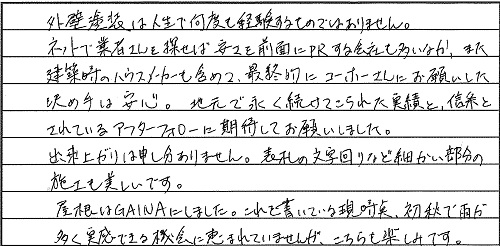 外壁塗装は人生で何度も経験するものではありません。
ネットで業者さんを探せば安さを前面にPRする会社も多いなか、また
建築時のハウスメーカーも含めて、最終的にコーホーさんにお願いした
決め手は安心。地元で永く続けてこられた実績と、信条と
されているアフターフォローに期待してお願いしました。
出来上がりは申し分ありません。表札の文字回りなど細かい部分の
施工も美しいです。
屋根はGAINAにしました。これを書いている現時点、初秋で雨が
多く実感できる機会に恵まれていませんが、こちらも楽しみです。